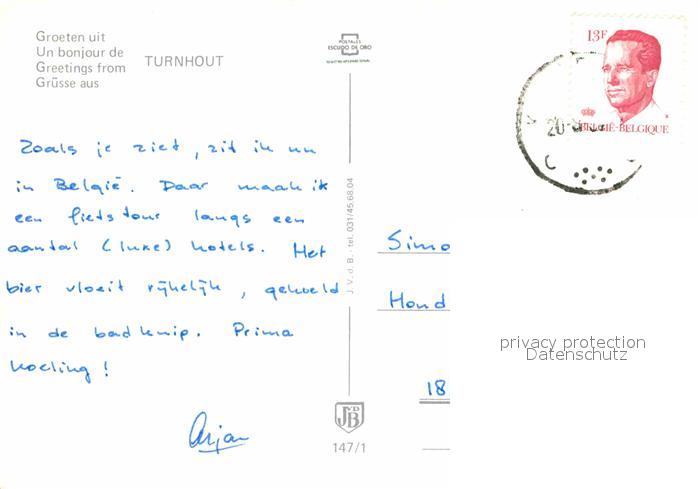 Groeten uit
Un bonjour de
Greetings from
Grüsse aus
TURNHOUT
POSTALES
ESCUDO DE ORO
13F
BELGIË-BELGIQUE
20-
Zoals je ziet, zit ik nu
in België. Daar maak ik
een fietstour langs een
aantal (luxe) hotels. Het
bier vloeit rijkelijk, gekoeld
in de badkuip. Prima
koeling!
Arjan
J.V.d.B. - tel. 031/45.68.04
JVDB
147/1
Simo
Hond
18
privacy protection
Datenschutz